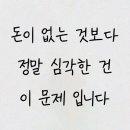 돈이 없는 것보다
정말 심각한 건
이 문제 입니다